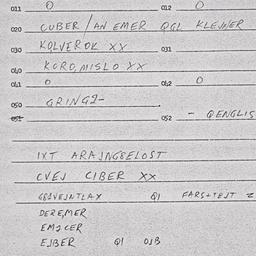 011 0 012 0
020 CUBER / AN EMER QGL KLEJNER
030 KOLVEROK XX 031
040 KORD, MISLO XX
041 0 042 0
050 GRING2-
051 052 - QENGLIS
IXT ARAJNGBELOST
CVEJ CIBER XX
QI FARS+TEJT
DEREMER
EMJCER
EJBER QI OJB